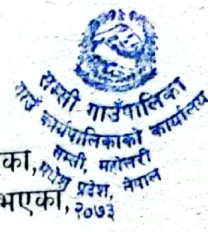 सम्सी गाउँपालिका
गाउँ कार्यपालिकाको कार्यालय
सम्सी, महोत्तरी
मधेश प्रदेश, नेपाल
२०७३
का,
भएका,